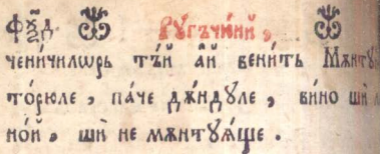 фӯ҃д Ругъчю́нїй,
чени́чилѡрь тъ́й ай вени́ть Мѫнту
то́рюле, па́че дѫ́ндуле, ви́но шѝ л
но́й, шѝ не мѫнтуѧ́ще.